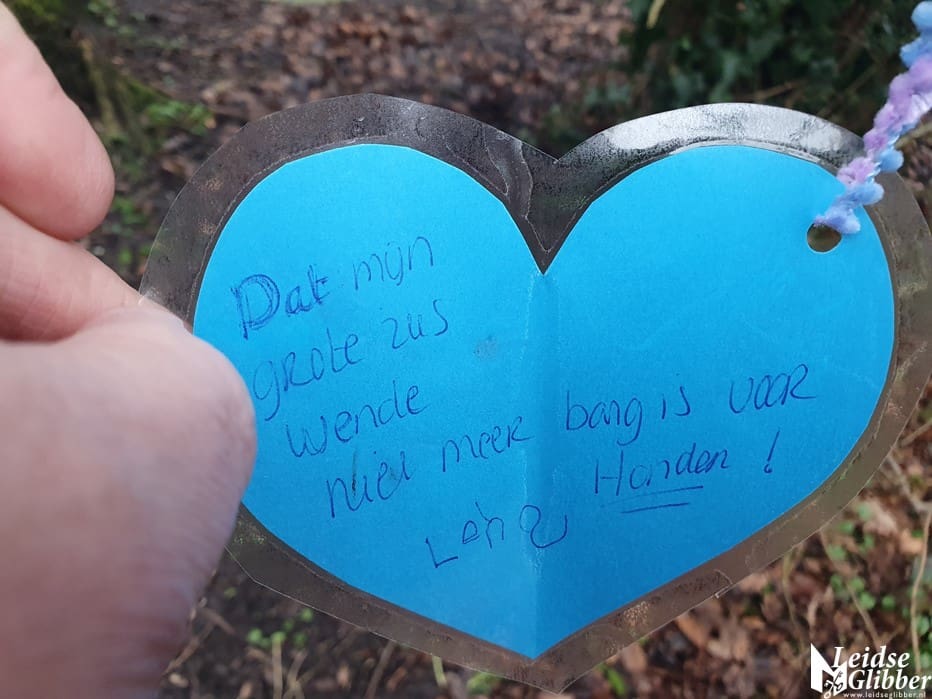 Dat mijn
grote zus
wende
niet meer bang is voor
Honden !
Leidse
Glibber
www.leidseglibber.nl